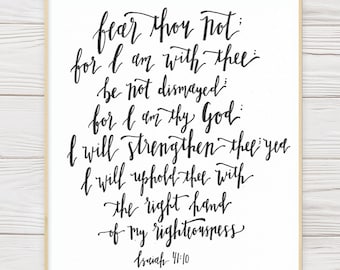 fear thou not;
for I am with thee:
be not dismayed;
for I am thy God:
I will strengthen thee; yea
I will uphold thee with
the right hand
of my righteousness
Isaiah 41:10